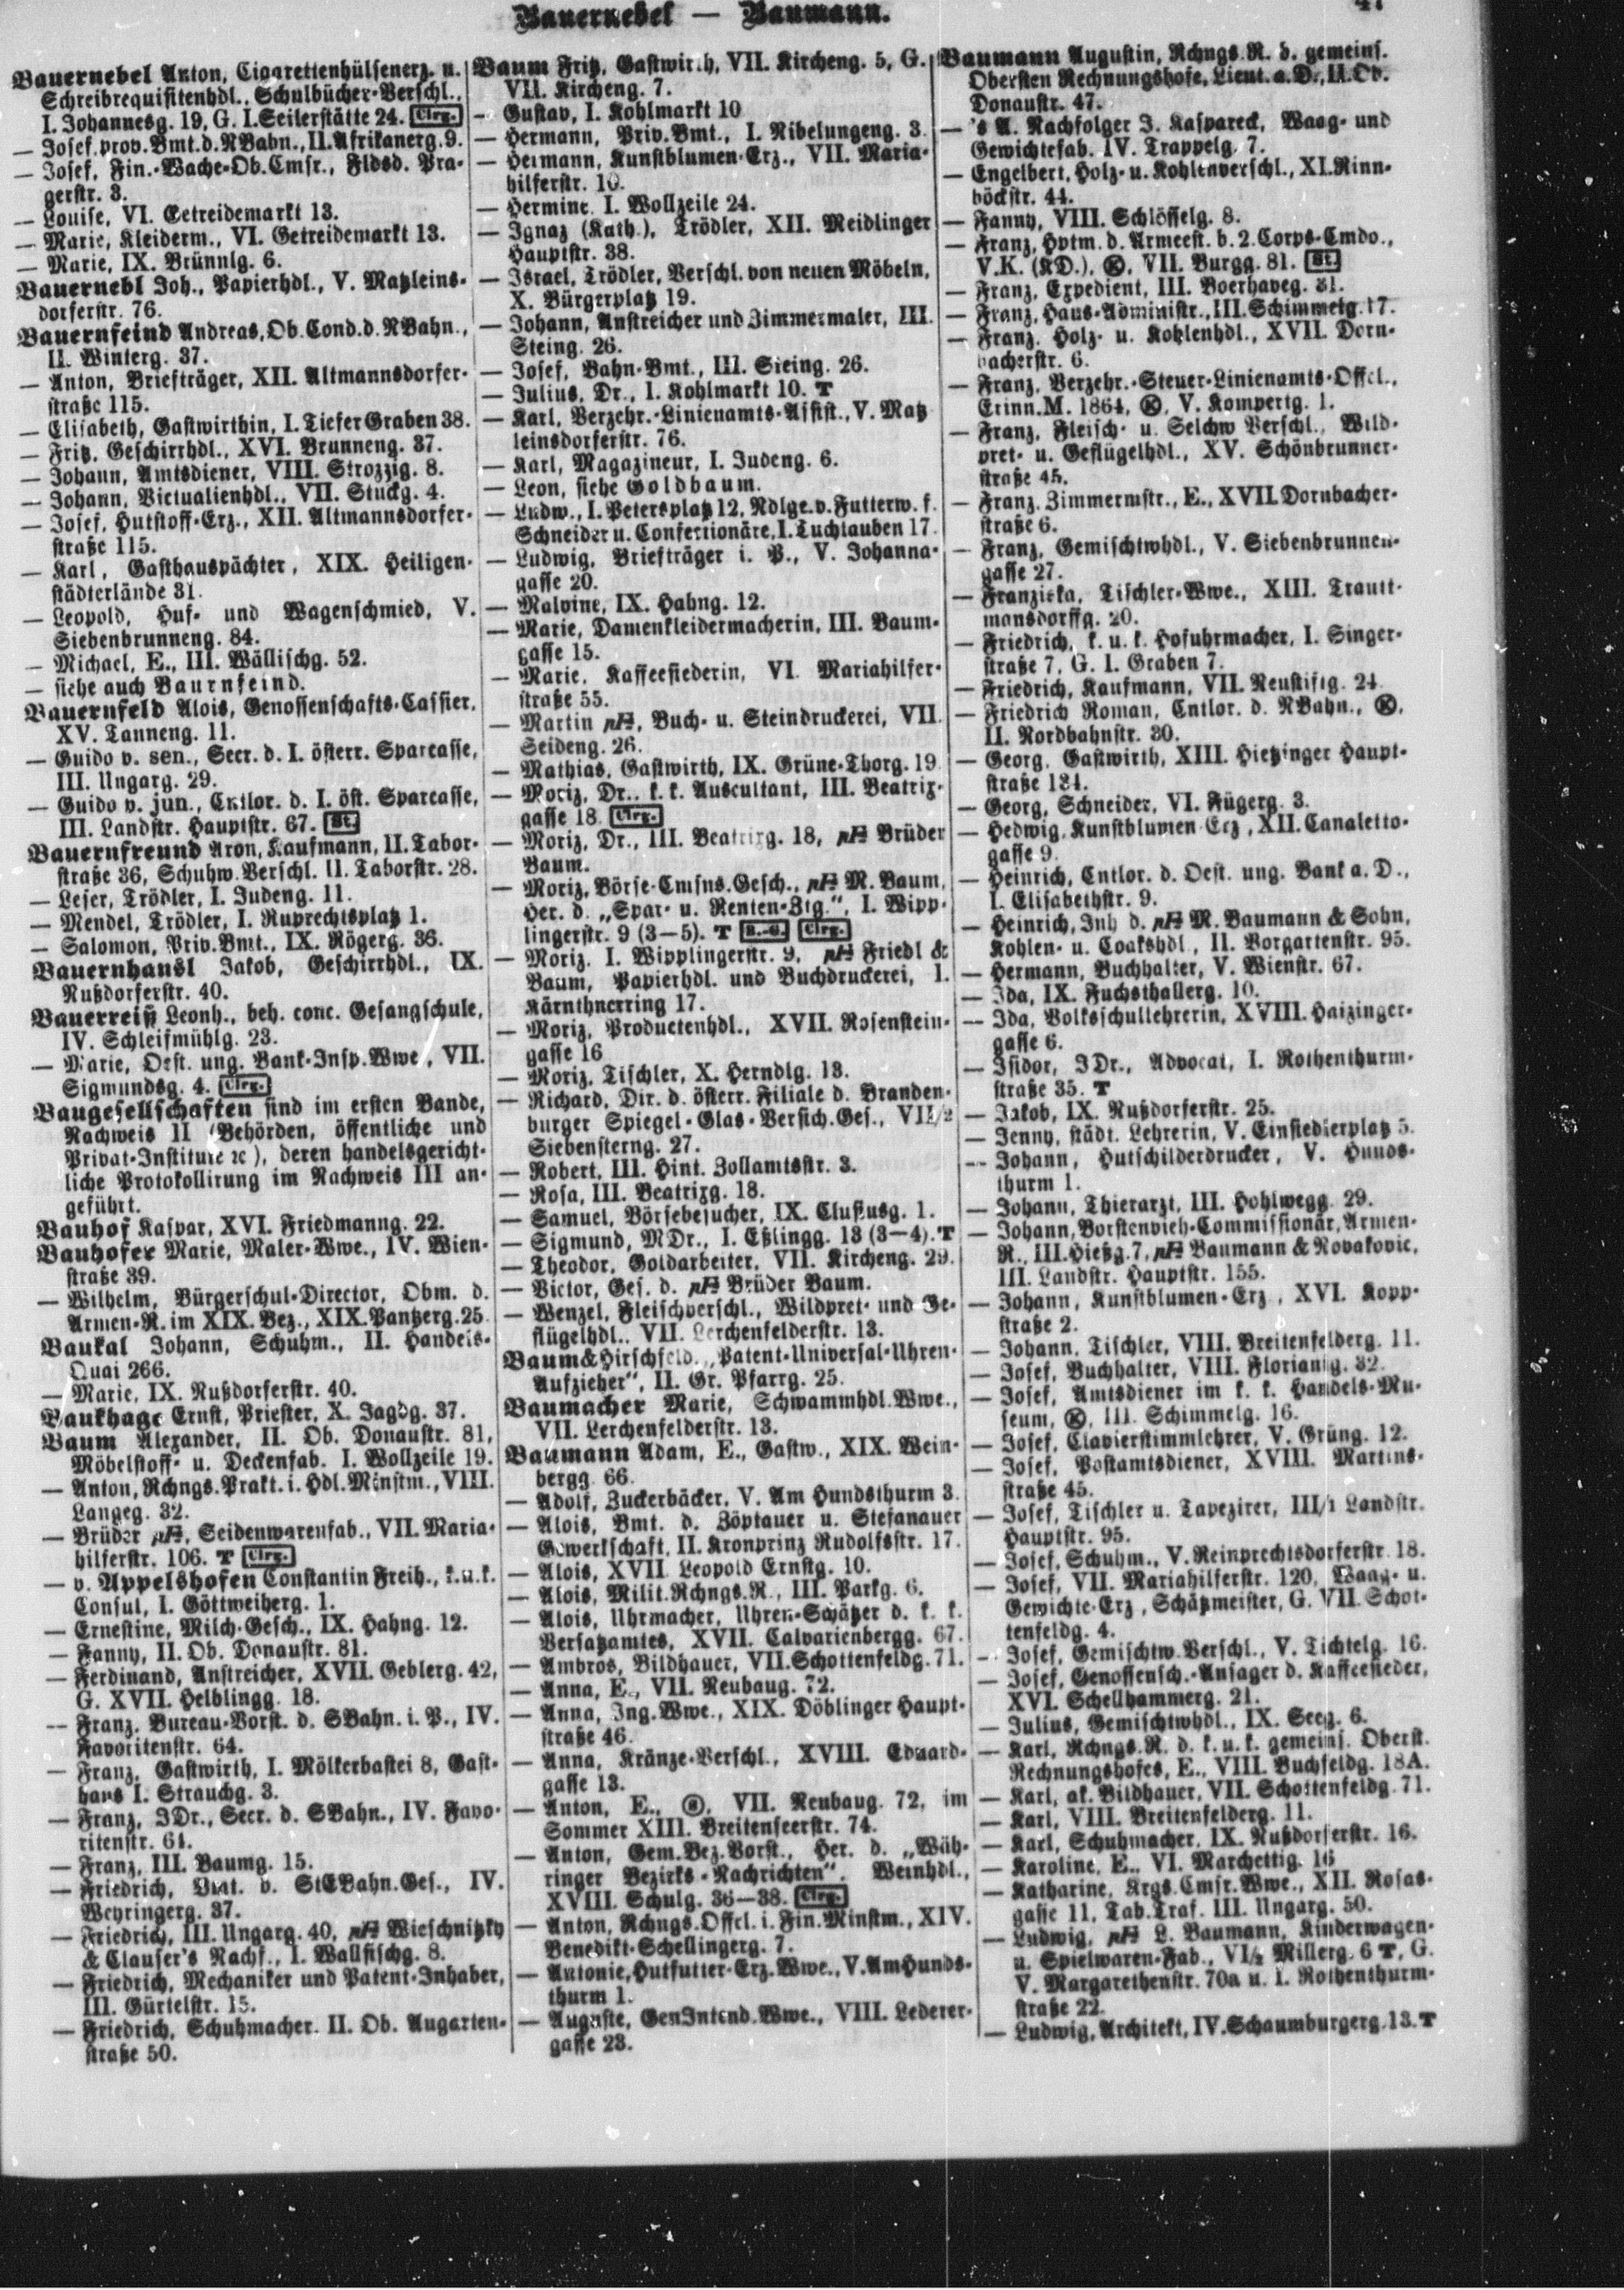 Bauernebel — Baumann.
47
Bauernebel Anton, Cigarettenhülsenerz. u.
Schreibrequisitenhdl., Schulbücher-Verschl.,
I. Johannesg. 19, G. I. Seilerstätte 24. Clrg.
— Josef, prov. Bmt. d. NBahn., II. Afrikanerg. 9.
— Josef, Fin.-Wache-Ob. Cmsr., Fldsd. Pra-
gerstr. 3.
— Louise, VI. Getreidemarkt 13.
— Marie, Kleiderm., VI. Getreidemarkt 13.
— Marie, IX. Brünnlg. 6.
Bauernebl Joh., Papierhdl., V. Matzleins-
dorferstr. 76.
Bauernfeind Andreas, Ob. Cond. d. NBahn.,
II. Winterg. 37.
— Anton, Briefträger, XII. Altmannsdorfer-
straße 115.
— Elisabeth, Gastwirthin, I. Tiefer Graben 38.
— Fritz, Geschirrhdl., XVI. Brunneng. 37.
— Johann, Amtsdiener, VIII. Strozzig. 8.
— Johann, Victualienhdl., VII. Stuckg. 4.
— Josef, Hutstoff-Erz., XII. Altmannsdorfer-
straße 115.
— Karl, Gasthauspächter, XIX. Heiligen-
städterlände 31.
— Leopold, Huf- und Wagenschmied, V.
Siebenbrunneng. 84.
— Michael, E., III. Wällischg. 52.
— siehe auch Baurnfeind.
Bauernfeld Alois, Genossenschafts-Cassier,
XV. Tanneng. 11.
— Guido v. sen., Secr. d. I. österr. Sparcasse,
III. Ungarg. 29.
— Guido v. jun., Cntlor. d. I. öst. Sparcasse,
III. Landstr. Hauptstr. 67. St.
Bauernfreund Aron, Kaufmann, II. Tabor-
straße 36, Schuhw. Verschl. II. Taborstr. 28.
— Leser, Trödler, I. Judeng. 11.
— Mendel, Trödler, I. Ruprechtsplatz 1.
— Salomon, Priv. Bmt., IX. Rögerg. 36.
Bauernhansl Jakob, Geschirrhdl., IX.
Nußdorferstr. 40.
Bauerreiß Leonh., beh. conc. Gesangschule,
IV. Schleifmühlg. 23.
— Marie, Oest. ung. Bank-Insp. Wwe, VII.
Sigmundsg. 4. Clrg.
Baugesellschaften sind im ersten Bande,
Nachweis II (Behörden, öffentliche und
Privat-Institute ꝛc), deren handelsgericht-
liche Protokollirung im Nachweis III an-
geführt.
Bauhof Kaspar, XVI. Friedmanng. 22.
Bauhofer Marie, Maler-Wwe., IV. Wien-
straße 39.
— Wilhelm, Bürgerschul-Director, Obm. d.
Armen-R. im XIX. Bez., XIX. Pantzerg. 25
Baukal Johann, Schuhm., II. Handels-
Quai 266.
— Marie, IX. Nußdorferstr. 40.
Baukhage Ernst, Priester, X. Jagdg. 37.
Baum Alexander, II. Ob. Donaustr. 81,
Möbelstoff- u. Deckenfab. I. Wollzeile 19.
— Anton, Rchngs. Prakt. i. Hdl. Minstm., VIII.
Langeg. 32.
— Brüder, Seidenwarenfab., VII. Maria-
hilferstr. 106. T Clrg.
— v. Appelshofen Constantin Freih., k. u. k.
Consul, I. Göttweiherg. 1.
— Ernestine, Milch-Gesch., IX. Hahng. 12.
— Fanny, II. Ob. Donaustr. 81.
— Ferdinand, Anstreicher, XVII. Geblerg. 42,
G. XVII. Helblingg. 18.
— Franz, Bureau-Vorst. d. SBahn. i. P., IV.
Favoritenstr. 64.
— Franz, Gastwirth, I. Mölkerbastei 8, Gast-
haus I. Strauchg. 3.
— Franz, JDr., Secr. d. SBahn., IV. Favo-
ritenstr. 64.
— Franz, III. Baumg. 15.
— Friedrich, Bmt. d. StEBahn. Ges., IV.
Weyringerg. 37.
— Friedrich, III. Ungarg. 40, Wieschnitzky
& Clauser's Nachf., I. Wallfischg. 8.
— Friedrich, Mechaniker und Patent-Inhaber,
III. Gürtelstr. 15.
— Friedrich, Schuhmacher. II. Ob. Augarten-
straße 50.
Baum Fritz, Gastwirth, VII. Kircheng. 5, G.
VII. Kircheng. 7.
— Gustav, I. Kohlmarkt 10
— Hermann, Priv. Bmt., I. Nibelungeng. 3.
— Hermann, Kunstblumen-Erz., VII. Maria-
hilferstr. 10.
— Hermine, I. Wollzeile 24.
— Ignaz (Kath.), Trödler, XII. Meidlinger
Hauptstr. 38.
— Israel, Trödler, Verschl. von neuen Möbeln,
X. Bürgerplatz 19.
— Johann, Anstreicher und Zimmermaler, III.
Steing. 26.
— Josef, Bahn-Bmt., III. Steing. 26.
— Julius, Dr., I. Kohlmarkt 10. T
— Karl, Verzehr.-Linienamts-Assist., V. Matz
leinsdorferstr. 76.
— Karl, Magazineur, I. Judeng. 6.
— Leon, siehe Goldbaum.
— Ludw., I. Petersplatz 12, Ndlge. v. Futterw. f.
Schneider u. Confectionäre, I. Tuchlauben 17.
— Ludwig, Briefträger i. P., V. Johanna-
gasse 20.
— Malvine, IX. Hahng. 12.
— Marie, Damenkleidermacherin, III. Baum-
gasse 15.
— Marie, Kaffeesiederin, VI. Mariahilfer-
straße 55.
— Martin, Buch- u. Steindruckerei, VII.
Seideng. 26.
— Mathias, Gastwirth, IX. Grüne-Thorg. 19.
— Moriz, Dr., k. k. Auscultant, III. Beatrix-
gasse 18. Clrg.
— Moriz, Dr., III. Beatrixg. 18, Brüder
Baum.
— Moriz, Börse-Cmsns. Gesch., M. Baum,
Her. d. „Spar- u. Renten-Ztg.“, I. Wipp-
lingerstr. 9 (3—5). T Clrg.
— Moriz, I. Wipplingerstr. 9, Friedl &
Baum, Papierhdl. und Buchdruckerei, I.
Kärnthnerring 17.
— Moriz, Productenhdl., XVII. Rosenstein-
gasse 16
— Moriz, Tischler, X. Herndlg. 13.
— Richard, Dir. d. österr. Filiale d. Branden-
burger Spiegel-Glas-Versich. Ges., VII/2
Siebensterng. 27.
— Robert, III. Hint. Zollamtsstr. 3.
— Rosa, III. Beatrixg. 18.
— Samuel, Börsebesucher, IX. Clusiusg. 1.
— Sigmund, MDr., I. Eßlingg. 13 (3—4). T
— Theodor, Goldarbeiter, VII. Kircheng. 29.
— Victor, Ges. d. Brüder Baum.
— Wenzel, Fleischverschl., Wildpret- und Ge-
flügelhdl., VII. Lerchenfelderstr. 13.
Baum & Hirschfeld, „Patent-Universal-Uhren-
Aufzieher“, II. Gr. Pfarrg. 25.
Baumacher Marie, Schwammhdl. Wwe.,
VII. Lerchenfelderstr. 13.
Baumann Adam, E., Gastw., XIX. Wein-
bergg. 66.
— Adolf, Zuckerbäcker, V. Am Hundsthurm 3.
— Alois, Bmt. d. Zöptauer u. Stefanauer
Gewerkschaft, II. Kronprinz Rudolfsstr. 17.
— Alois, XVII. Leopold Ernstg. 10.
— Alois, Milit. Rchngs. R., III. Parkg. 6.
— Alois, Uhrmacher, Uhren-Schätzer d. k. k.
Versatzamtes, XVII. Calvarienbergg. 67.
— Ambros, Bildhauer, VII. Schottenfeldg. 71.
— Anna, E., VII. Neubaug. 72.
— Anna, Ing. Wwe., XIX. Döblinger Haupt-
straße 46.
— Anna, Kränze-Verschl., XVIII. Eduard-
gasse 13.
— Anton, E., VII. Neubaug. 72, im
Sommer XIII. Breitenseerstr. 74.
— Anton, Gem. Bez. Vorst., Her. d. „Wäh-
ringer Bezirks-Nachrichten“, Weinhdl.,
XVIII. Schulg. 36—38. Clrg.
— Anton, Rchngs. Offcl. i. Fin. Minstm., XIV.
Benedikt-Schellingerg. 7.
— Antonie, Hutfutter-Erz. Wwe., V. Am Hunds-
thurm 1.
— Auguste, GenIntend. Wwe., VIII. Lederer-
gasse 23.
Baumann Augustin, Rchngs. R. d. gemeins.
Obersten Rechnungshofe, Lieut. a. D., II. Ob.
Donaustr. 47.
— 's A. Nachfolger J. Kaspareck, Waag- und
Gewichtefab. IV. Trappelg. 7.
— Engelbert, Holz- u. Kohlenverschl., XI. Rinn-
böckstr. 44.
— Fanny, VIII. Schlösselg. 8.
— Franz, Hptm. d. Armeest. b. 2. Corps-Cmdo.,
V.K. (KD.), K, VII. Burgg. 81. St.
— Franz, Expedient, III. Boerhaveg. 31.
— Franz, Haus-Administr., III. Schimmelg. 17.
— Franz, Holz- u. Kohlenhdl., XVII. Dorn-
bacherstr. 6.
— Franz, Verzehr.-Steuer-Linienamts-Offcl.,
Erinn.M. 1864, K, V. Kompertg. 1.
— Franz, Fleisch- u. Selchw Verschl., Wild-
pret- u. Geflügelhdl., XV. Schönbrunner-
straße 45.
— Franz, Zimmermstr., E., XVII. Dornbacher-
straße 6.
— Franz, Gemischtwhdl., V. Siebenbrunnen-
gasse 27.
— Franziska, Tischler-Wwe., XIII. Trautt-
mansdorffg. 20.
— Friedrich, k. u. k. Hofuhrmacher, I. Singer-
straße 7, G. I. Graben 7.
— Friedrich, Kaufmann, VII. Neustiftg. 24.
— Friedrich Roman, Cntlor. d. NBahn., K,
II. Nordbahnstr. 30.
— Georg, Gastwirth, XIII. Hietzinger Haupt-
straße 134.
— Georg, Schneider, VI. Fügerg. 3.
— Hedwig, Kunstblumen-Erz., XII. Canaletto-
gasse 9.
— Heinrich, Cntlor. d. Oest. ung. Bank a. D.,
I. Elisabethstr. 9.
— Heinrich, Inh. d. M. Baumann & Sohn,
Kohlen- u. Coakshdl., II. Vorgartenstr. 95.
— Hermann, Buchhalter, V. Wienstr. 67.
— Ida, IX. Fuchsthallerg. 10.
— Ida, Volksschullehrerin, XVIII. Haizinger-
gasse 6.
— Isidor, JDr., Advocat, I. Rothenthurm-
straße 35. T
— Jakob, IX. Nußdorferstr. 25.
— Jenny, städt. Lehrerin, V. Einsiedlerplatz 5.
— Johann, Hutschilderdrucker, V. Hunds-
thurm 1.
— Johann, Thierarzt, III. Hohlwegg. 29.
— Johann, Borstenvieh-Commissionär, Armen-
R., III. Hießg. 7, Baumann & Novakovic,
III. Landstr. Hauptstr. 155.
— Johann, Kunstblumen-Erz., XVI. Kopp-
straße 2.
— Johann, Tischler, VIII. Breitenfelderg. 11.
— Josef, Buchhalter, VIII. Florianig. 32.
— Josef, Amtsdiener im k. k. Handels-Mu-
seum, K, III. Schimmelg. 16.
— Josef, Clavierstimmlehrer, V. Grüng. 12.
— Josef, Postamtsdiener, XVIII. Martins-
straße 45.
— Josef, Tischler u. Tapezirer, III/1 Landstr.
Hauptstr. 95.
— Josef, Schuhm., V. Reinprechtsdorferstr. 18.
— Josef, VII. Mariahilferstr. 120, Waag- u.
Gewichte-Erz., Schätzmeister, G. VII. Schot-
tenfeldg. 4.
— Josef, Gemischtw. Verschl., V. Tichtelg. 16.
— Josef, Genossensch.-Ansager d. Kaffeesieder,
XVI. Schellhammerg. 21.
— Julius, Gemischtwhdl., IX. Seeg. 6.
— Karl, Rchngs. R. d. k. u. k. gemeins. Oberst.
Rechnungshofes, E., VIII. Buchfeldg. 18A.
— Karl, ak. Bildhauer, VII. Schottenfeldg. 71.
— Karl, VIII. Breitenfelderg. 11.
— Karl, Schuhmacher, IX. Nußdorferstr. 16.
— Karoline, E., VI. Marchettig. 16
— Katharine, Krgs. Cmsr. Wwe., XII. Rosas-
gasse 11, Tab. Traf. III. Ungarg. 50.
— Ludwig, L. Baumann, Kinderwagen-
u. Spielwaren-Fab., VI/2 Millerg. 6 T, G.
V. Margarethenstr. 70a u. I. Rothenthurm-
straße 22.
— Ludwig, Architekt, IV. Schaumburgerg. 13. T